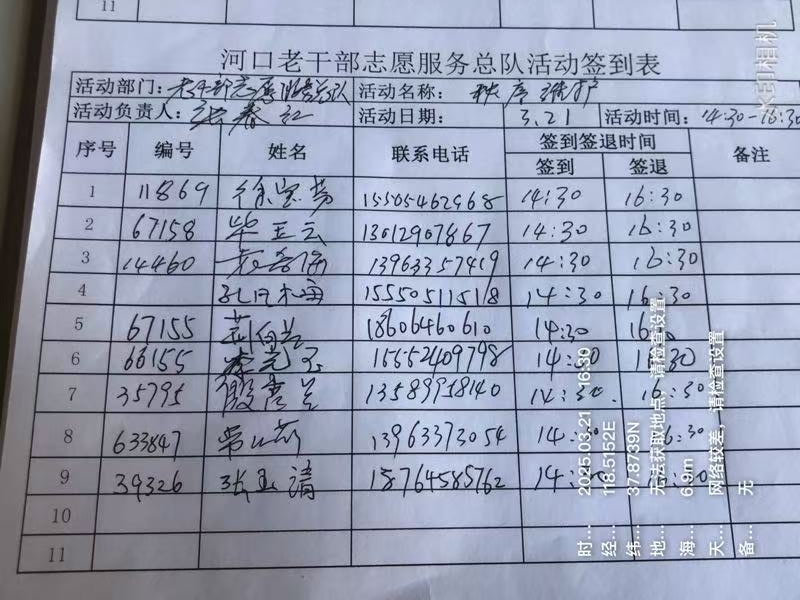 11
河口老干部志愿服务总队活动签到表
活动部门：老干部志愿服务总队 活动名称： 秩序维护
活动负责人： 张春红 活动日期： 3.21 活动时间：14:30-16:30
序号 编号 姓名 联系电话 签到签退时间 备注
签到 签退
1 11869 徐宝芳 15505462968 14:30 16:30
2 67158 毕玉云 13012907867 14:30 16:30
3 14460 13963357419 14:30 16:30
4 15550511518 14:30 16:30
5 67155 18606460610 14:30
6 66155 15552409798
7 35795 殷秀兰 13589958140 14:30 16:30
8 633847 13963373054
9 39326 张玉清 18764585762
10
11
时… 2025.03.21 16:30
经… 118.5152E
纬… 37.8739N
地… 无法获取地点，请检查设置
海… 6.9m
天… 网络较差，请检查设置
备… 无
水印相机